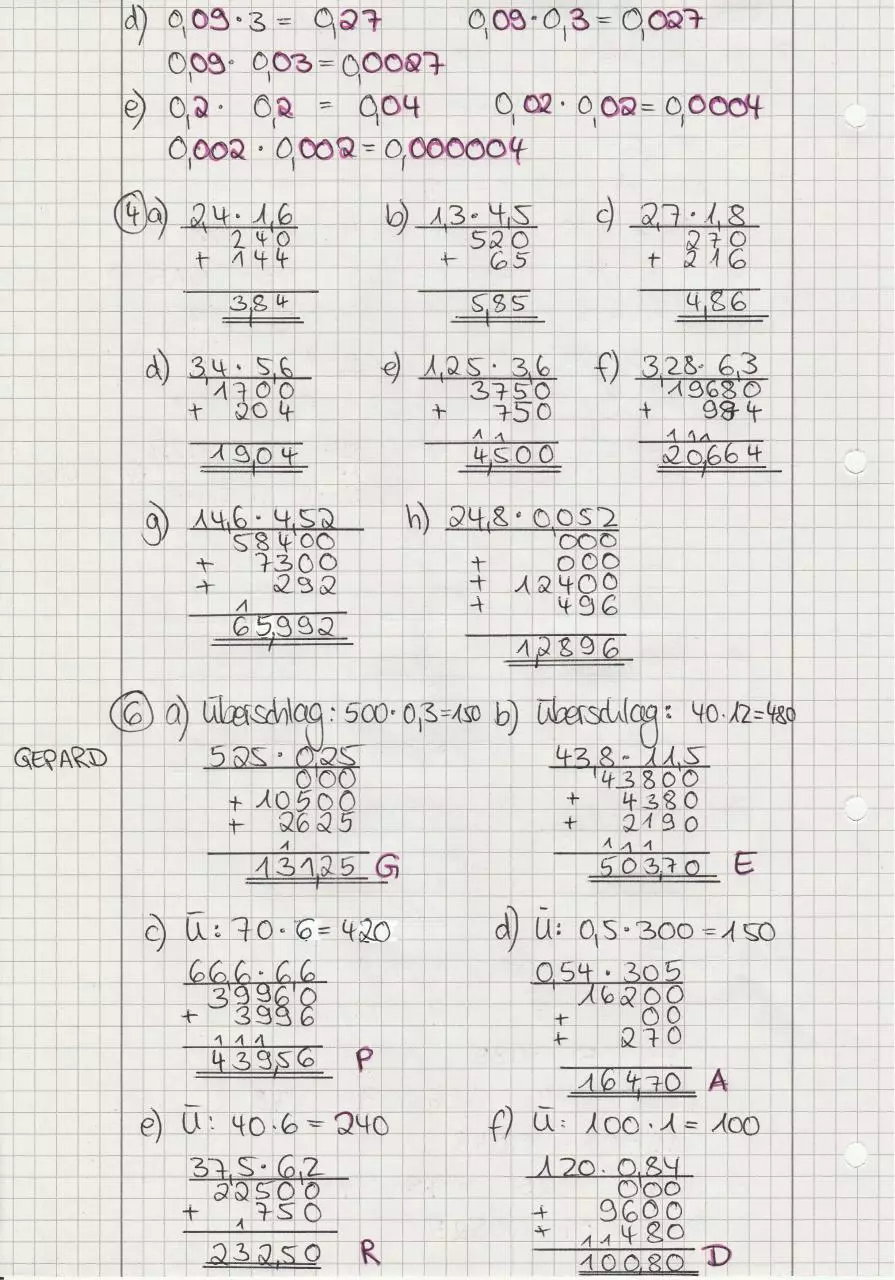 d) 0,09 · 3 = 0,27 0,09 · 0,3 = 0,027
0,09 · 0,03 = 0,0027
e) 0,2 · 0,2 = 0,04 0,02 · 0,02 = 0,0004
0,002 · 0,002 = 0,000004
④ a) 2,4 · 1,6 b) 1,3 · 4,5 c) 2,7 · 1,8
240 520 270
+ 144 + 65 + 216
3,84 5,85 4,86
d) 3,4 · 5,6 e) 1,25 · 3,6 f) 3,28 · 6,3
1700 3750 19680
+ 204 + 750 + 984
1 1 1 1 1
19,04 4,500 20,664
g) 14,6 · 4,52 h) 24,8 · 0,052
58400 000
+ 7300 + 000
+ 292 + 12400
1 + 496
65,992 1,2896
⑥ a) Überschlag: 500 · 0,3 = 150 b) Überschlag: 40 · 12 = 480
GEPARD 525 · 0,25 43,8 · 11,5
000 43800
+ 10500 + 4380
+ 2625 + 2190
1 1 1 1
131,25 G 503,70 E
c) Ü: 70 · 6 = 420 d) Ü: 0,5 · 300 = 150
66,6 · 6,6 0,54 · 305
39960 16200
+ 3996 + 00
1 1 1 + 270
439,56 P 164,70 A
e) Ü: 40 · 6 = 240 f) Ü: 100 · 1 = 100
37,5 · 6,2 120 · 0,84
22500 000
+ 750 + 9600
1 + 1 1 480
232,50 R 100,80 D